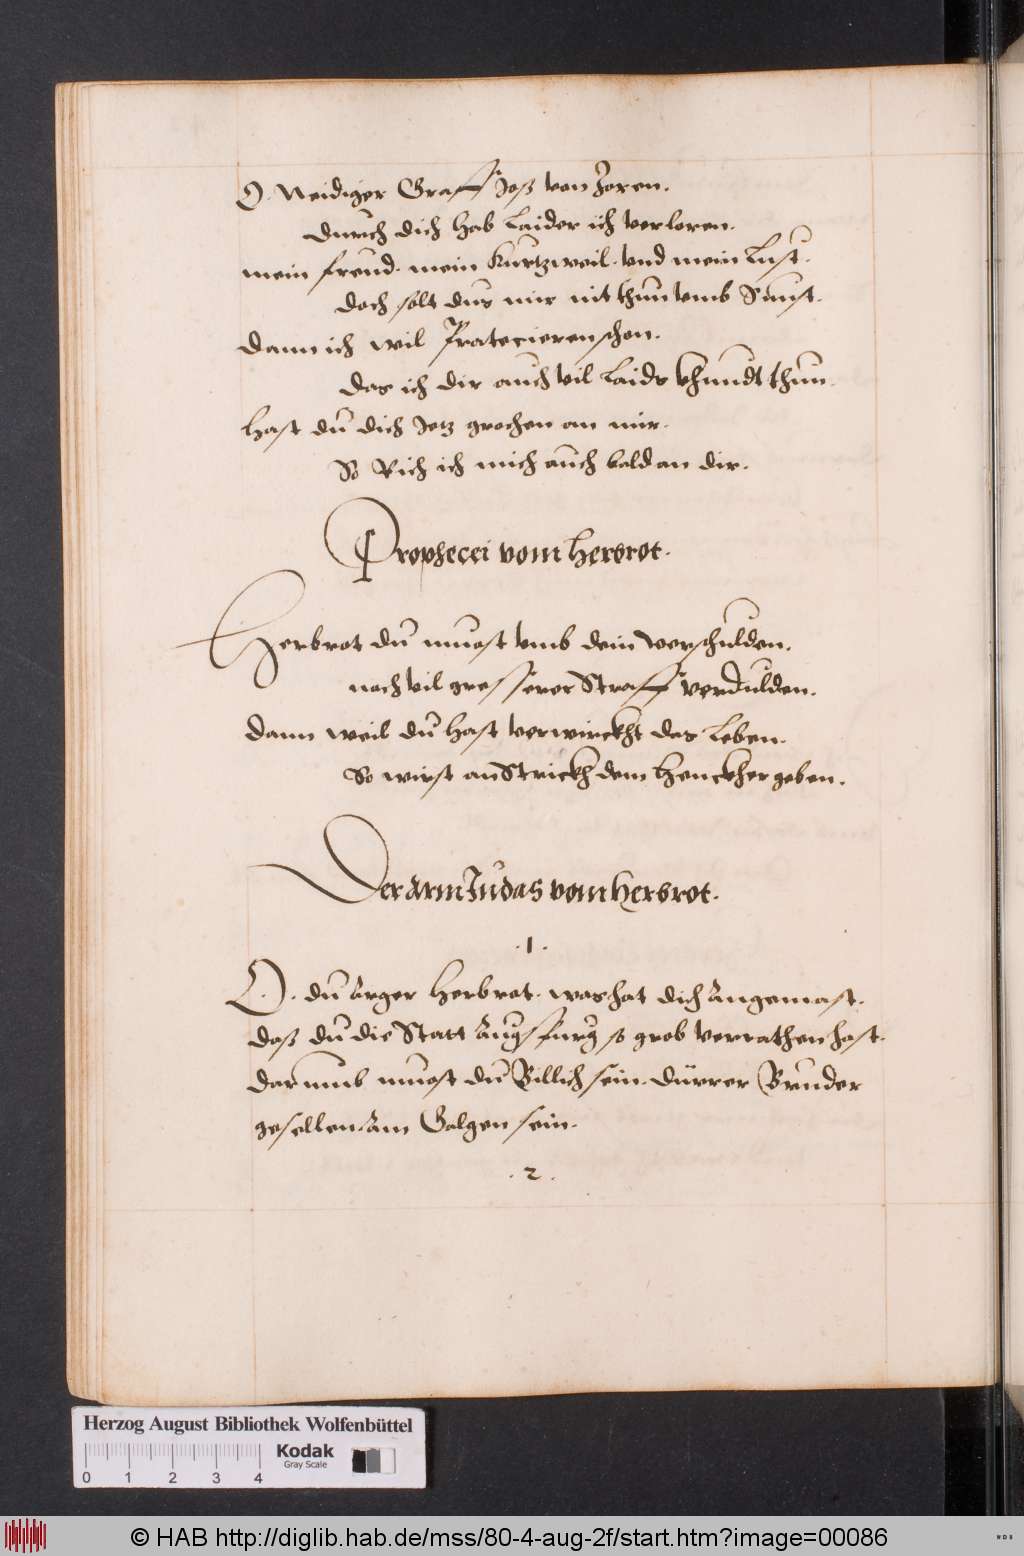 O. Neidiger Graff Joß von Zoren.
durch dich hab Laider ich verloren.
mein freud. mein Kurtzweil. vnd mein Lust.
doch solt dus mir nit thun vmb Sunst.
dann ich wil Pratecieren schon.
das ich dir auch vil Laids khundt thun.
hast du dich Jetz grochen an mir.
So Rich ich mich auch bald an dir.
Prophecei vom Herbrot.
Herbrot du muost vmb dein verschulden.
noch vil gresserer Straff verdulden.
dann weil du hast verwirckht das Leben.
So wirst an Strickh dem Henckher geben.
Der Arm Judas vom Herbrot.
.1.
O. du Arger Herbrot. was hat dich Angemast.
daß du die Statt Augsfurg so grob verrathen hast.
darumb muost du Billich sein. dürrer Bruder
gesellen. Am Galgen sein.
.2.
Herzog August Bibliothek Wolfenbüttel
Kodak
Gray Scale
0 1 2 3 4
© HAB http://diglib.hab.de/mss/80-4-aug-2f/start.htm?image=00086